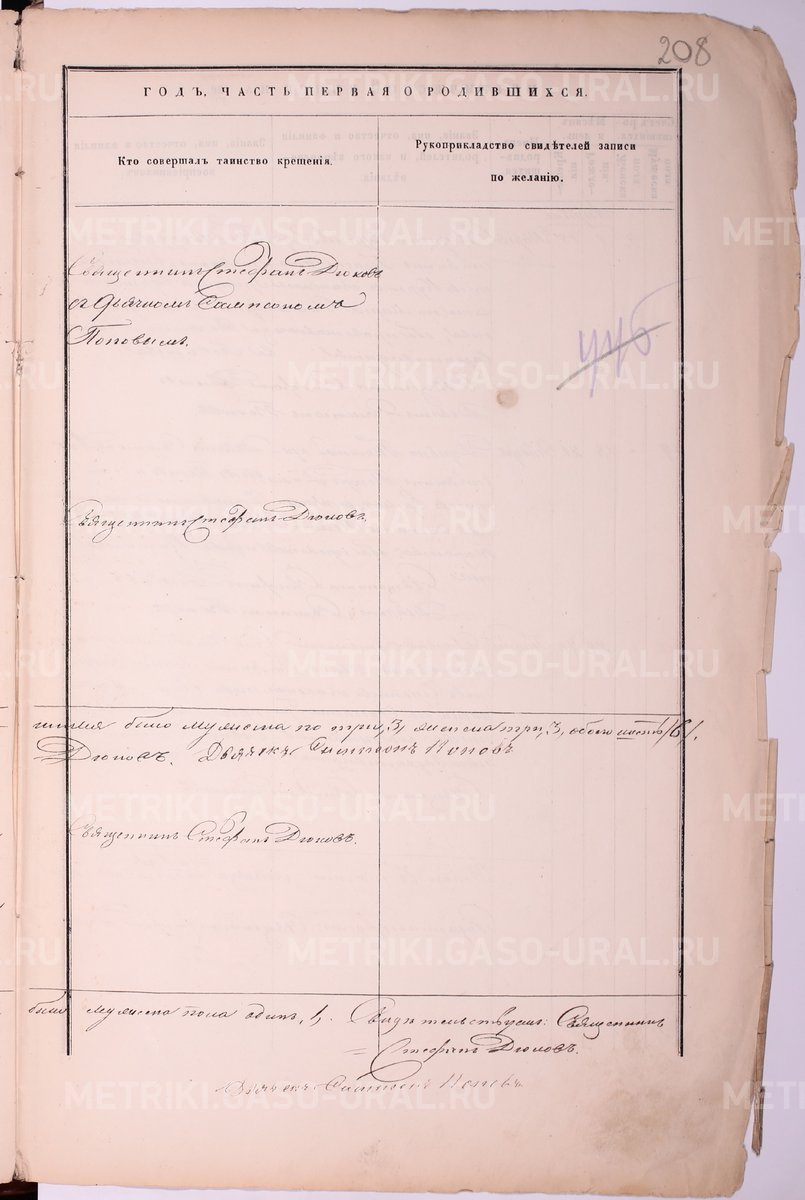 208
ГОДЪ, ЧАСТЬ ПЕРВАЯ О РОДИВШИХСЯ.
Кто совершалъ таинство крещенія.
Рукоприкладство свидѣтелей записи
по желанію.
Священникъ Стефанъ Дюковъ
съ дьячкомъ Сампсономъ
Поповымъ.
Священникъ Стефанъ Дюковъ.
было мужеска по три, 3, женска три, 3, обоего шесть /6/.
Дюковъ. Дьячекъ Сампсонъ Поповъ
Священникъ Стефанъ Дюковъ.
было мужеска пола одинъ, 1, Свидѣтельствуемъ: Священникъ
Стефанъ Дюковъ.
Дьячекъ Сампсонъ Поповъ
METRIKI.GASO-URAL.RU